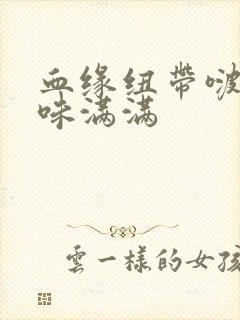 血缘纽带啵
味满满
雲一樣的女孩